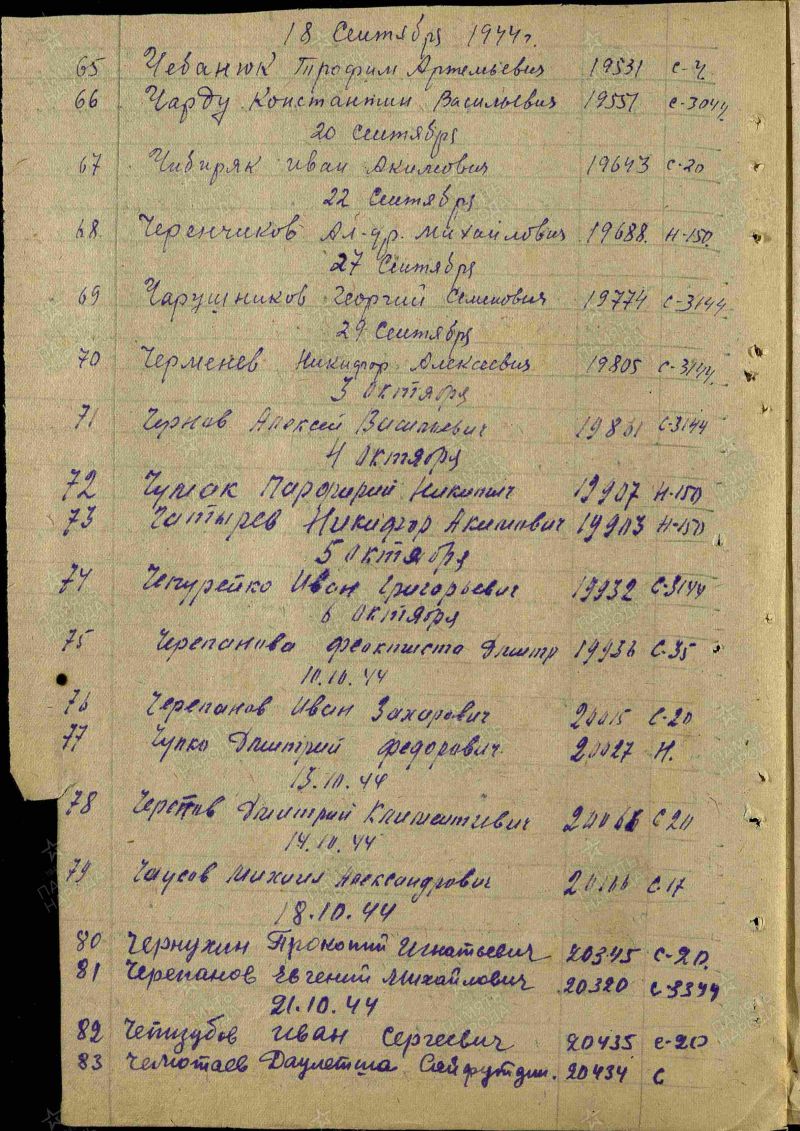 18 Сентября 1944 г.
65 Чебанюк Трофим Артемьевич 19531 с-ч
66 Чарду Константин Васильевич 19551 с-3044
20 сентября
67 Чибиряк иван Акимович 19643 с-20
22 Сентября
68 Черенчиков Ал-др. Михайлович 19688. Н-150.
27 Сентября
69 Чарушников Георгий Семенович 19774 с-3144
29 Сентября
70 Черменев Никифор Алексеевич 19805 с-3144.
3 октября
71 Чернов Алексей Васильевич с-3144
4 октября
72 Чумак Никитич 19907 Н-150
73 Чатырев Никифор Акимович 19903 Н-150
5 октября
74 Иван Григорьевич 19932 с-3144
6 октября
75 Черепанова феоктиста Дмитр 19936 с-35
10.10.44
76 Черепанов Иван Захарович 20015 с-20
77 Чупко Дмитрий федорович 20027 Н.
13.10.44
78 Дмитрий с 20
14.10.44
79 Чаусов Михаил Александрович с-17
18.10.44
80 Чернухин Прокопий Игнатьевич 20345 с-20.
81 Черепанов Евгений Михайлович 20320 с-3344
21.10.44
82 иван Сергеевич 20435 с-20
83 Даулетша 20434 с